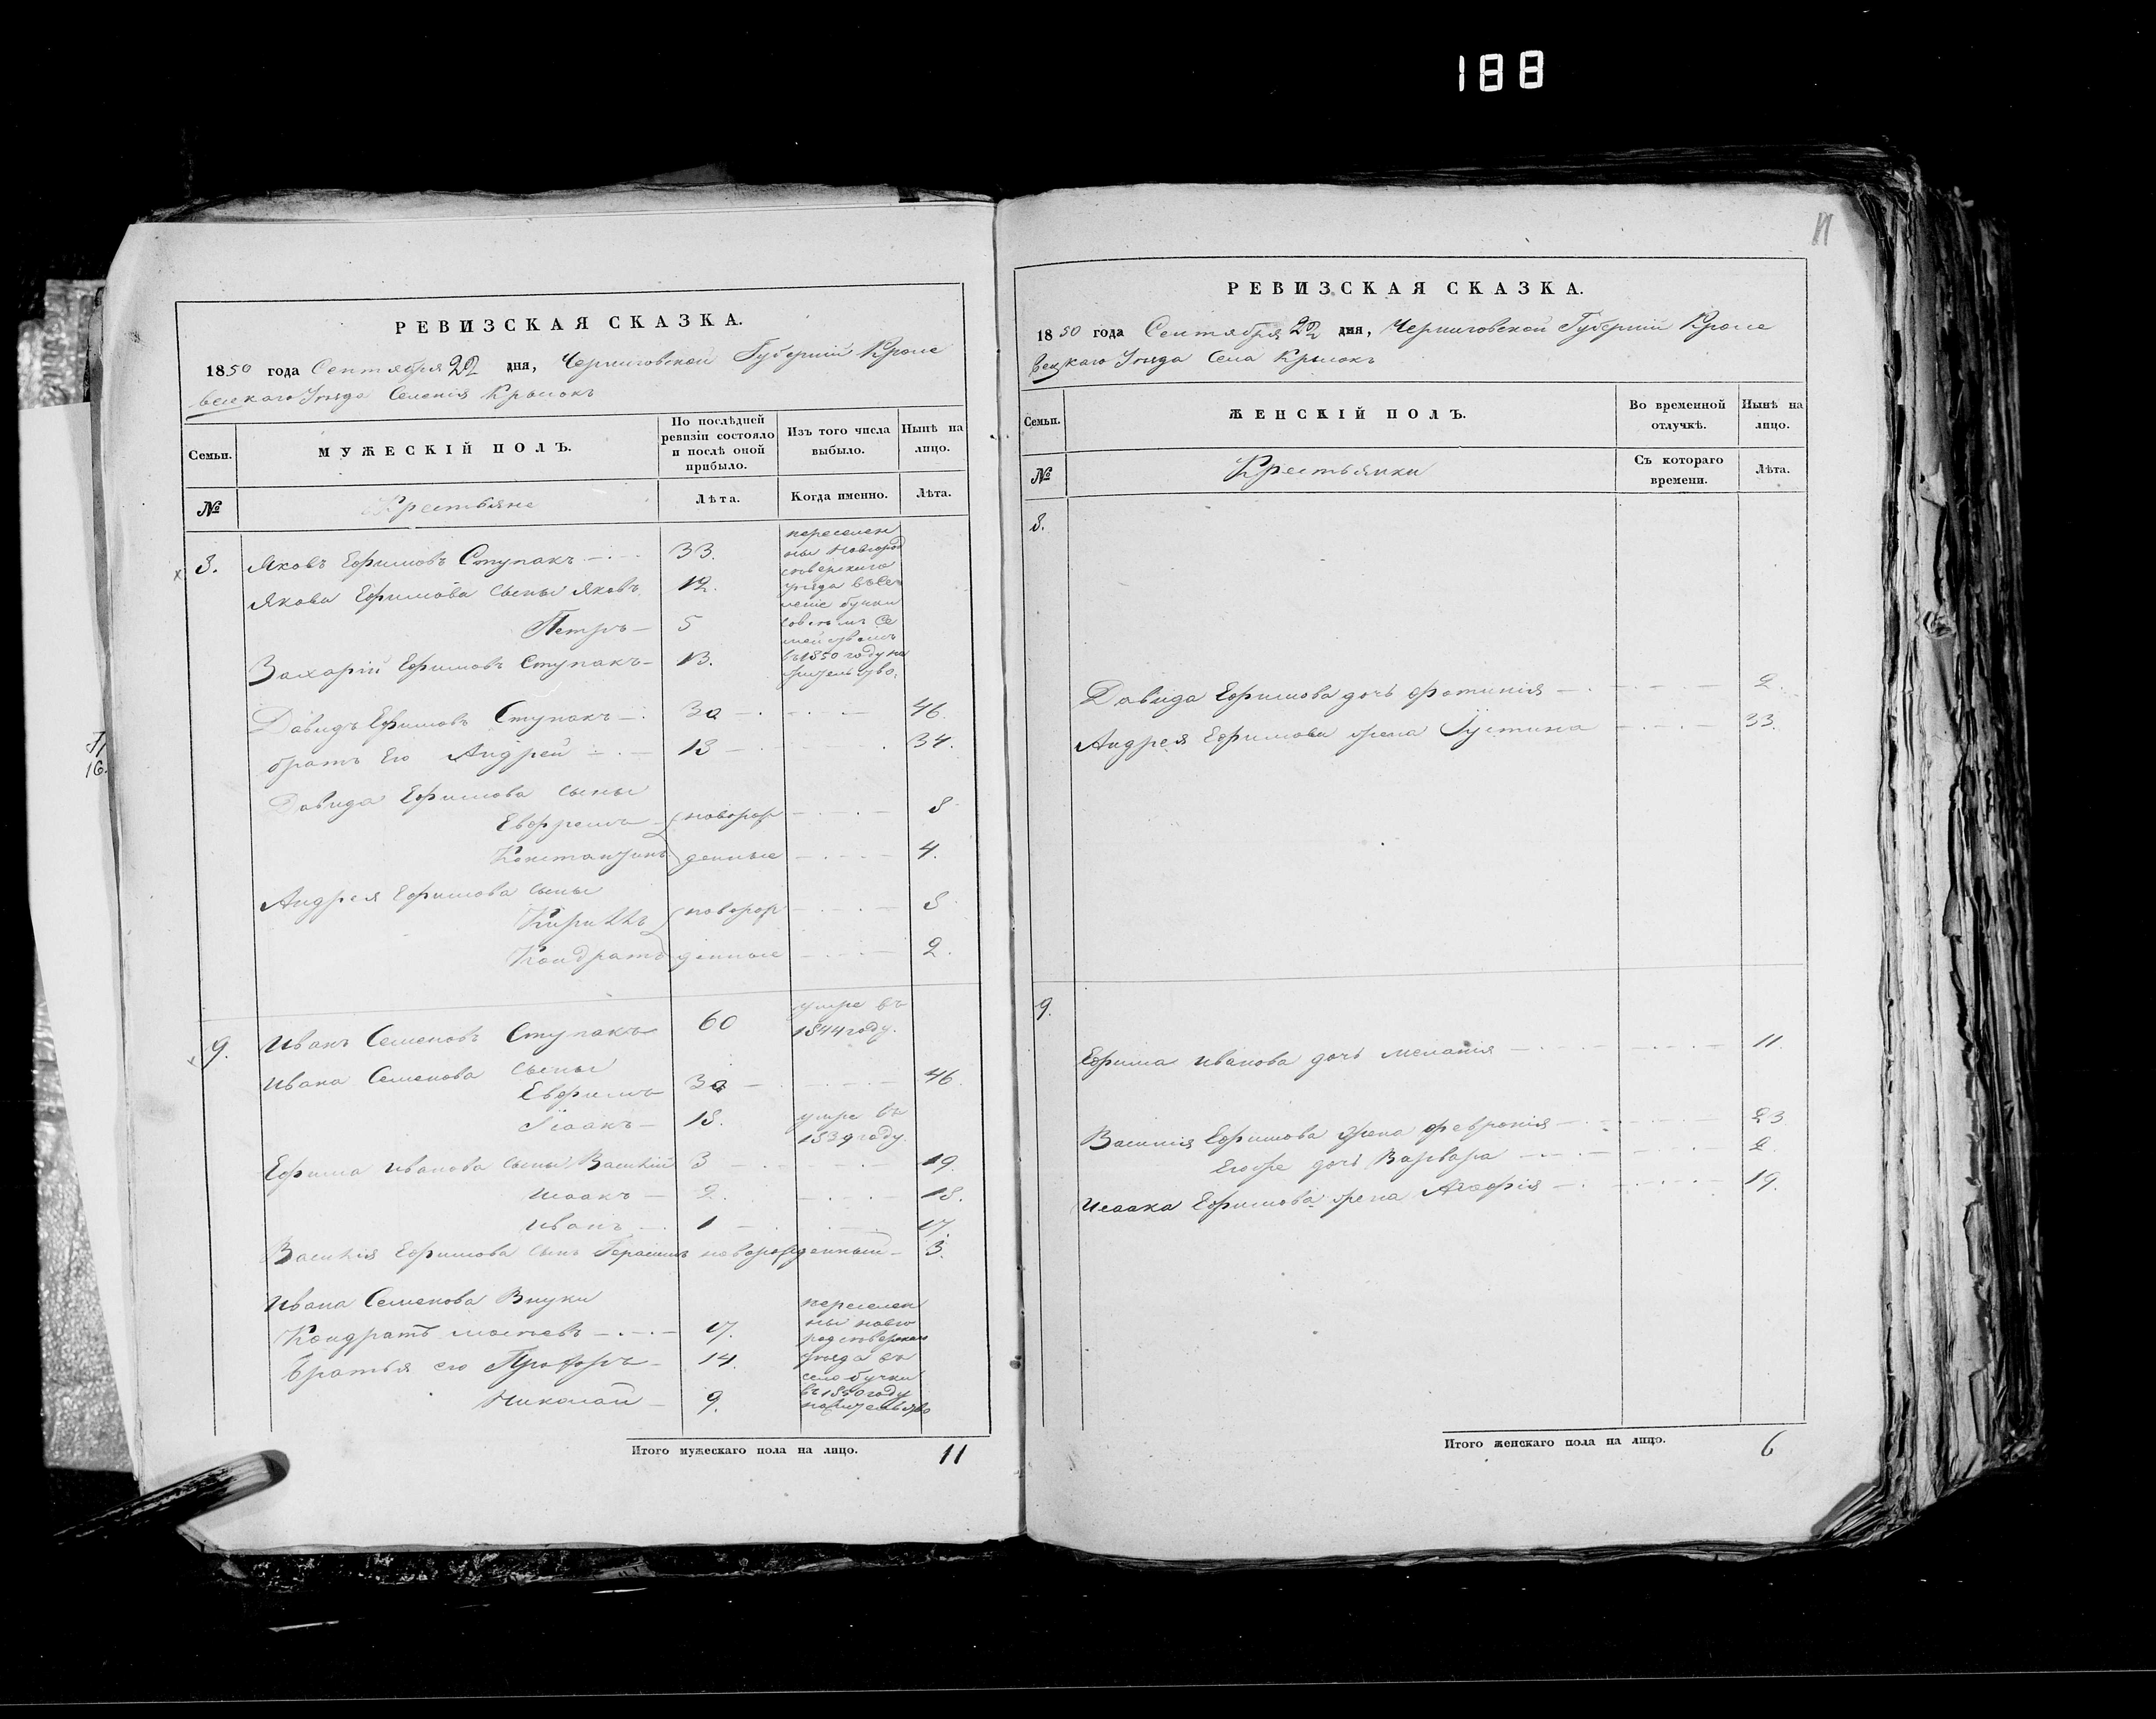 188
РЕВИЗСКАЯ СКАЗКА.
1850 года Сентября 22 дня, Черниговской Губерніи Кроле
вецкаго Уезда Селенія Крысокъ
Семьи.
МУЖЕСКІЙ ПОЛЪ.
По послѣдней ревизіи состояло и послѣ оной прибыло.
Изъ того числа выбыло.
Нынѣ на лицо.
№
Крестьяне
Лѣта.
Когда именно.
Лѣта.
8. Яковъ Ефимовъ Ступакъ 33. переселен
ны Новгород
северскаго
Якова Ефимова сыны Яковъ 12. уезда въ се
леніе бучки
Петръ 5 совсемъ се
мействомъ
Захарій Ефимовъ Ступакъ 13. въ 1850 году на
жительство.
Давидъ Ефимовъ Ступакъ 30 46.
братъ его Андрей 18 34.
Давида Ефимова сыны
Евфремъ новорож 8
Константинъ денные 4.
Андрея Ефимова сыны
Кирилъ новорож 8
Кондратъ денные 2.
9. Иванъ Семеновъ Ступакъ 60 умре въ
1844 году.
Ивана Семенова сыны
Евфимъ 30 46.
Ісаакъ 18. умре въ
1839 году.
Ефима Иванова сыны Василій 3 19.
Исаакъ 2. 18.
Иванъ 1 17.
Василія Ефимова сынъ Герасимъ новорожденный 3.
Ивана Семенова Внуки переселен
ны новго
Кондратъ 17. родсеверскаго
Братья его Прохоръ 14. уезда въ
село бучки
Николай 9. въ 1850 году
на жительство
Итого мужескаго пола на лицо. 11
РЕВИЗСКАЯ СКАЗКА.
1850 года Сентября 22 дня, Черниговской Губерніи Кроле
вецкаго Уезда Села Крысокъ
Семьи.
ЖЕНСКІЙ ПОЛЪ.
Во временной отлучкѣ.
Нынѣ на лицо.
№
Крестьянки
Съ котораго времени.
Лѣта.
8.
Давида Ефимова дочь Фотинія 2.
Андрея Ефимова жена Іустина 33.
9.
Ефима Иванова дочь Меланія 11
Василія Ефимова жена Февронія 23
Егоже дочь Варвара 2.
Исаака Ефимова жена Агафія 19.
Итого женскаго пола на лицо. 6